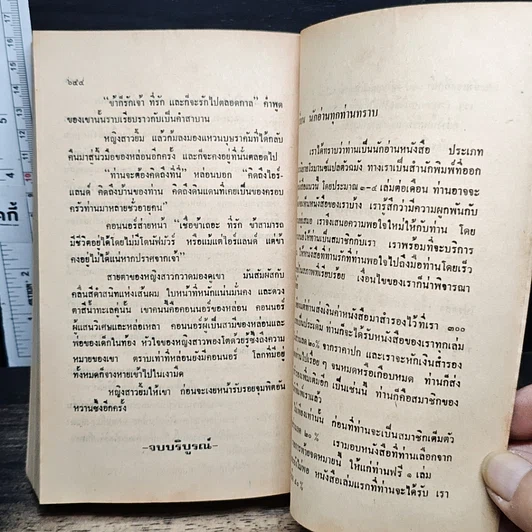 ๖๔๔
"ข้าก็รักเจ้า ที่รัก และก็จะรักไปตลอดกาล" คำพูด
ของเขานั้นราบเรียบราวกับเป็นคำสาบาน
หญิงสาวยิ้ม แล้วก้มลงมองแหวนบุษราคัมที่ได้กลับ
คืนมาสู่นิ้วมือของหล่อนอีกครั้ง และก็จะคงอยู่ที่นั่นตลอดไป
"ท่านจะต้องคิดถึงที่นี่" หล่อนบอก "คิดถึงไอร์-
แลนด์ คิดถึงบ้านของท่าน คิดถึงดินแดนที่เคยเป็นของครอบ
ครัวท่านมาหลายชั่วอายุคน"
คอนเนอร์ส่ายหน้า "เชื่อข้าเถอะ ที่รัก ข้าสามารถ
มีชีวิตอยู่ได้โดยไม่มีโดนฟิวรี่ หรือแม้แต่ไอร์แลนด์ แต่ข้า
คงอยู่ไม่ได้แน่หากปราศจากเจ้า"
สายตาของหญิงสาวกวาดมองดูเขา มันสัมผัสกับ
คลื่นสีดำสนิทแห่งเส้นผม ใบหน้าที่หนักแน่นมั่นคง และดวง
ตาสีน้ำทะเลคู่นั้น เขาคนนี้คือคอนเนอร์ของหล่อน คอนเนอร์
ผู้แสนวิเศษและหล่อเหลา คอนเนอร์ผู้เป็นสามีของหล่อนและ
พ่อของเด็กในท้อง หัวใจของหญิงสาวพองโตด้วยรู้ซึ้งถึงความ
หมายของเขา ตราบเท่าที่หล่อนยังมีคอนเนอร์ โลกที่มีอยู่
ทั้งหมดก็จางหายเข้าไปในเงามืด
หญิงสาวยิ้มให้เขา ก่อนจะเงยหน้ารับรอยจุมพิตอัน
หวานซึ้งอีกครั้ง
-จบบริบูรณ์-
นักอ่านทุกท่านทราบ
เราได้ทราบว่าท่านเป็นนักอ่านหนังสือ ประเภท
ทางเราเป็นสำนักพิมพ์ที่ออก
โดยประมาณ ๑-๔ เล่มต่อเดือน ท่านอาจจะ
หนังสือของเราบ้าง เรารู้สึกว่ามีความผูกพันกับ
เราจึงเสนอความพอใจใหม่ให้กับท่าน โดย
ให้ท่านเป็นสมาชิกกับเรา เราพร้อมที่จะบริการ
หนังสือที่ท่านรักที่ท่านพอใจไปถึงมือท่านโดยเร็ว
สภาพที่เรียบร้อย เงื่อนไขของเราก็น่าพิจารณา
ท่านส่งเงินค่าหนังสือมาสำรองไว้ที่เรา ๓๐๐
ท่านก็จะได้รับหนังสือของเราทุกเล่ม
๒๐% จากราคาปก และเราจะหักเงินสำรอง
ไปเรื่อย ๆ จนหมดหรือเกือบหมด ท่านก็ส่ง
เพิ่มเติมอีก เป็นเช่นนี้ ท่านก็คือสมาชิกของ
เราแล้ว
เท่านั้น ก่อนที่ท่านจะเป็นสมาชิกเต็มตัว
๒๐ % เรามอบหนังสือที่ท่านเลือกจาก
จดหมายนี้ ให้แก่ท่านฟรี ๑ เล่ม
หนังสือเล่มแรกที่ท่านจะได้รับ เรา